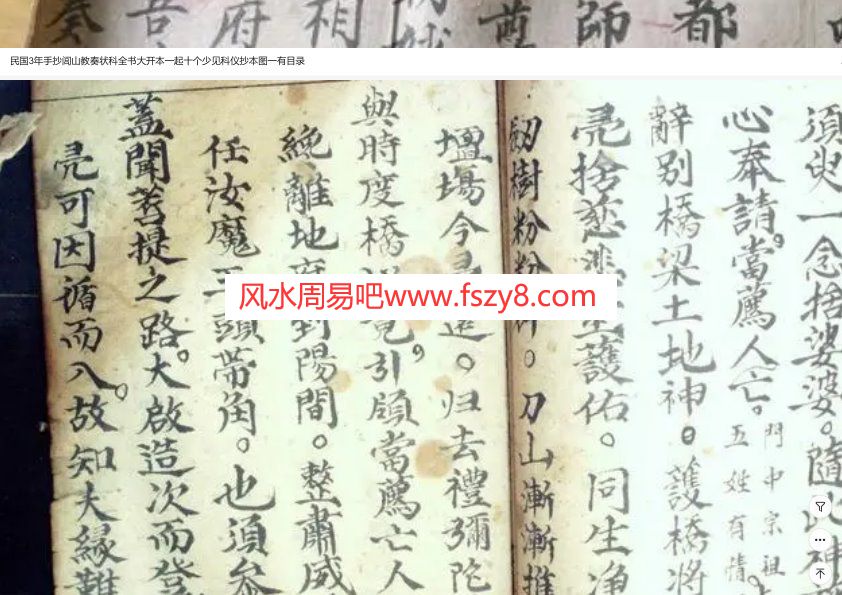 吾府相
尊師都
民国3年手抄闾山教奏状科全书大开本一起十个少见科仪抄本图一有目录
須臾一念捨婆婆。隨此神
心奉請。當薦人亡。門中宗祖
五姓有情
辭别橋梁土地神。護橋將
亮捨慈悲 護佑。同生净
劔樹粉粉 。刀山漸漸推
塭場今 遠。归去禮彌陀
與時度橋 竟。引領當薦亡人
絶離地府到陽間。整肅威
任汝魔王頭带角。也須参
蓋聞菩提之路。大啟造次而登
亮可因循而入。故知大緣難
风水周易吧www.fszy8.com